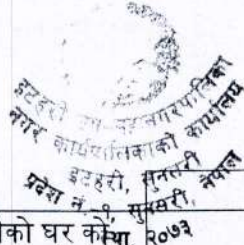 इटहरी उप-महानगरपालिका
नगर कार्यपालिकाको कार्यालय
इटहरी, सुनसरी
प्रदेश नं. १, सुनसरी, नेपाल
स्था २०७३
को घर को